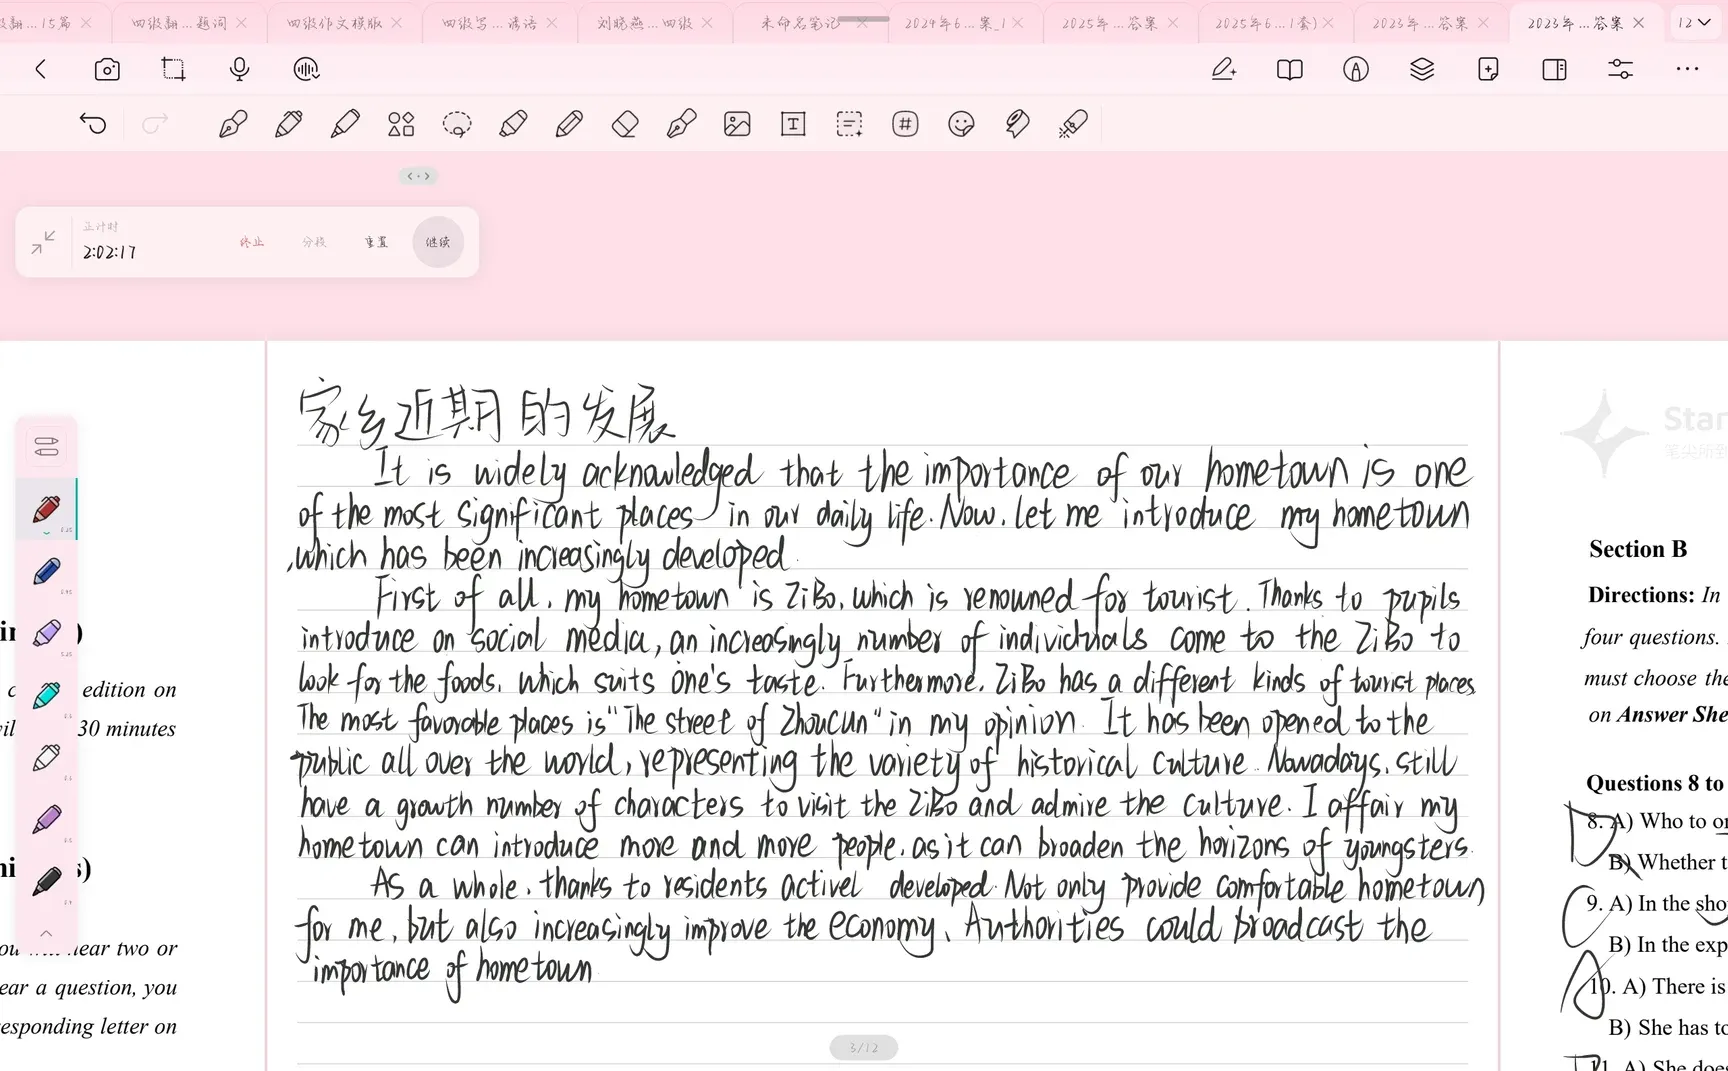 级翻...15篇
四级翻...题词
四级作文模版
四级写...谚语
刘晓燕...四级
未命名笔记
2024年6...案_1
2025年...答案
2025年6...1套)
2023年...答案
2023年...答案
12
正计时
2:02:17
终止
分段
重置
继续
edition on
30 minutes
s)
hear two or
ear a question, you
responding letter on
家乡近期的发展
It is widely acknowledged that the importance of our hometown is one
of the most significant places in our daily life. Now, let me introduce my hometown
,which has been increasingly developed.
First of all, my hometown is ZiBo, which is renowned for tourist. Thanks to pupils
introduce on social media, an increasingly number of individuals come to the ZiBo to
look for the foods, which suits one's taste. Furthermore, ZiBo has a different kinds of tourist places.
The most favorable places is "The street of Zhoucun" in my opinion. It has been opened to the
public all over the world, representing the variety of historical culture. Nowadays, still
have a growth number of characters to visit the ZiBo and admire the culture. I affair my
hometown can introduce more and more people, as it can broaden the horizons of youngsters.
As a whole, thanks to residents activel developed. Not only provide comfortable hometown
for me, but also increasingly improve the economy, Authorities could broadcast the
importance of hometown
3/12
Star
笔尖所到
Section B
Directions: In
four questions.
must choose the
on Answer She
Questions 8 to
D
8. A) Who to or
B) Whether t
C
9. A) In the sho
B) In the exp
A
10. A) There is
B) She has to
11. A) She does